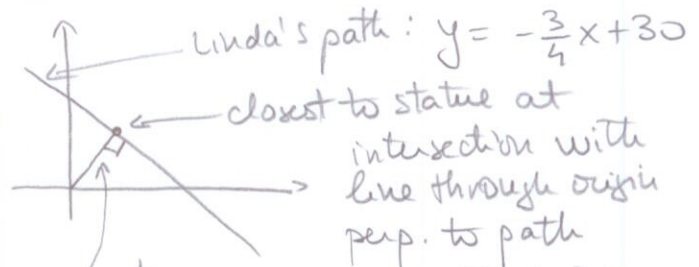 Linda's path: y = -3/4 x + 30
closest to statue at
intersection with
line through origin
perp. to path